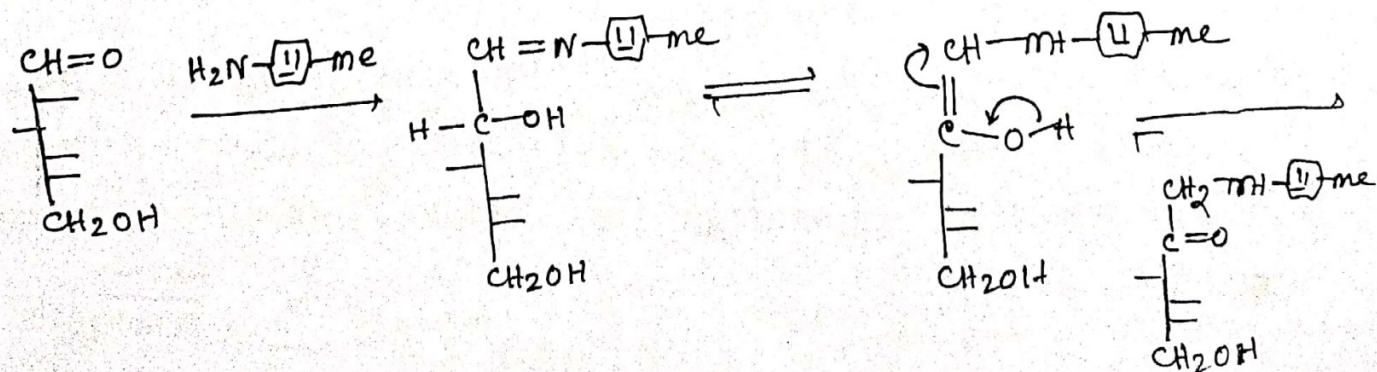 CH=O
H2N- -me
CH=N- -me
H-C-OH
CH2OH
CH2OH
CH-NH- -me
C-O-H
CH2OH
CH2-NH- -me
C=O
CH2OH